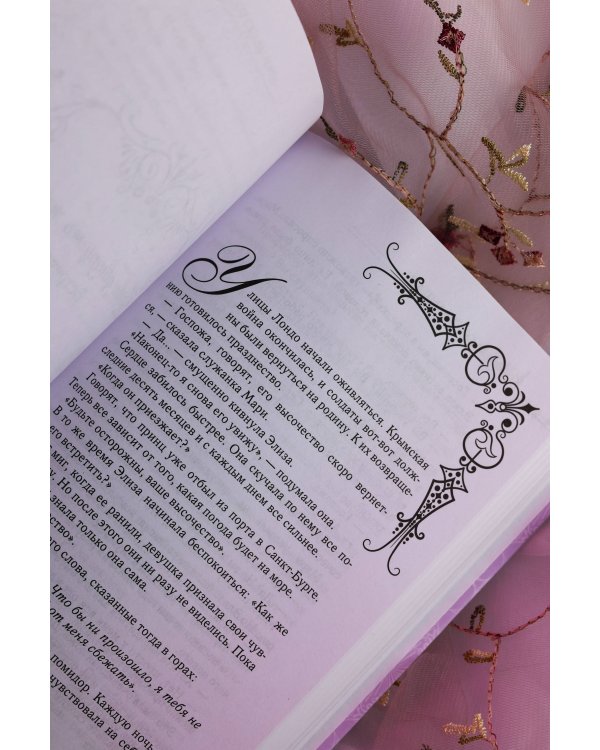 Улицы Лондо начали оживляться. Крымская
война окончилась, и солдаты вот-вот долж-
ны были вернуться на родину. К их возвраще-
нию готовилось празднество.
— Госпожа, говорят, его высочество скоро вернет-
ся, — сказала служанка Мэри.
— Да... — смущенно кивнула Элиза.
«Наконец-то я снова его увижу», — подумала она.
Сердце забилось быстрее. Она скучала по нему все по-
следние десять месяцев и с каждым днем все сильнее.
«Когда он приезжает?»
Говорят, что принц уже отбыл из порта в Санкт-Бурге.
Теперь все зависит от того, какая погода будет на море.
«Будьте осторожны, ваше высочество».
В то же время Элиза начинала беспокоиться: «Как же
его встретить?»
миг, когда ее ранили, девушка признала свои чув-
Но после этого они ни разу не виделись. Пока
знала только она сама.
слова, сказанные тогда в горах:
Что бы ни произошло, я тебя не
от меня сбежать».
помидор. Каждую ночь
чувствовала на себ